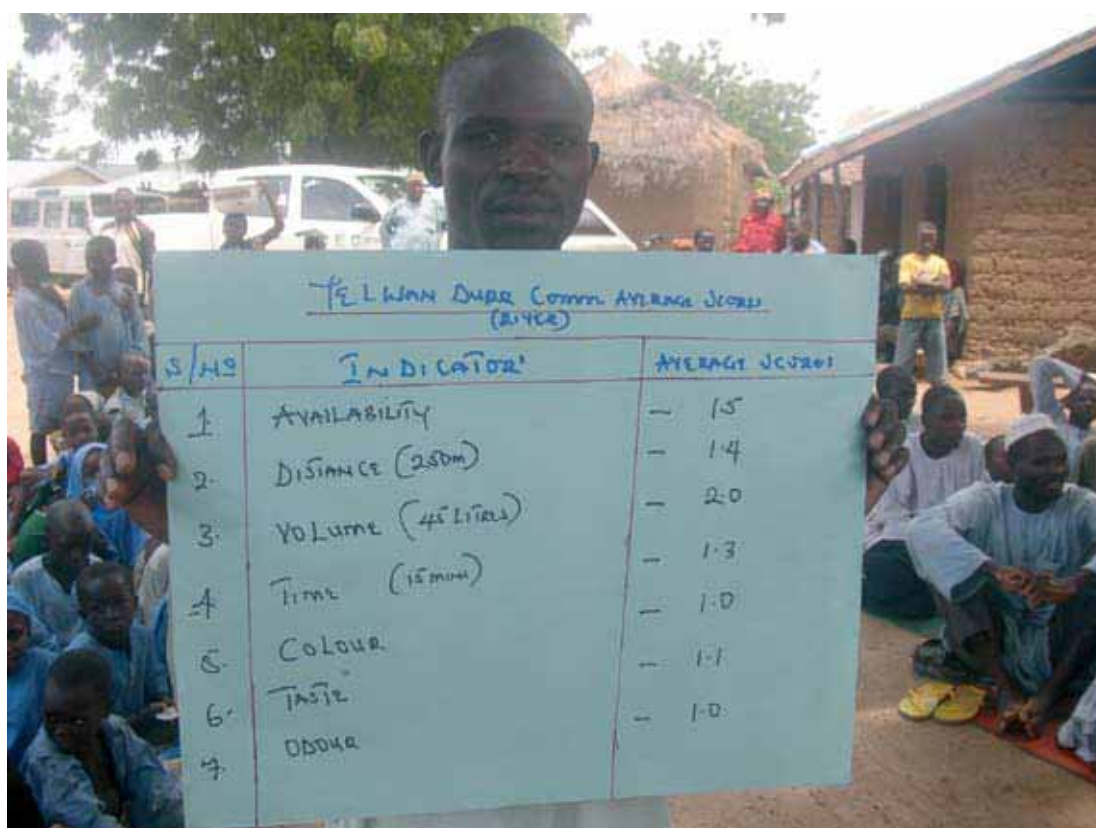 TELWAN DURR Comm AVERAGE SCORES
(RIVER)
S/NO INDICATOR' AVERAGE SCORES
1 AVAILABILITY - 1.5
2. DISTANCE (250m) - 1.4
3. VOLUME (45 LITRES) - 2.0
4 TIME (15 mins) - 1.3
5. COLOUR - 1.0
6. TASTE - 1.1
7. ODOUR - 1.0